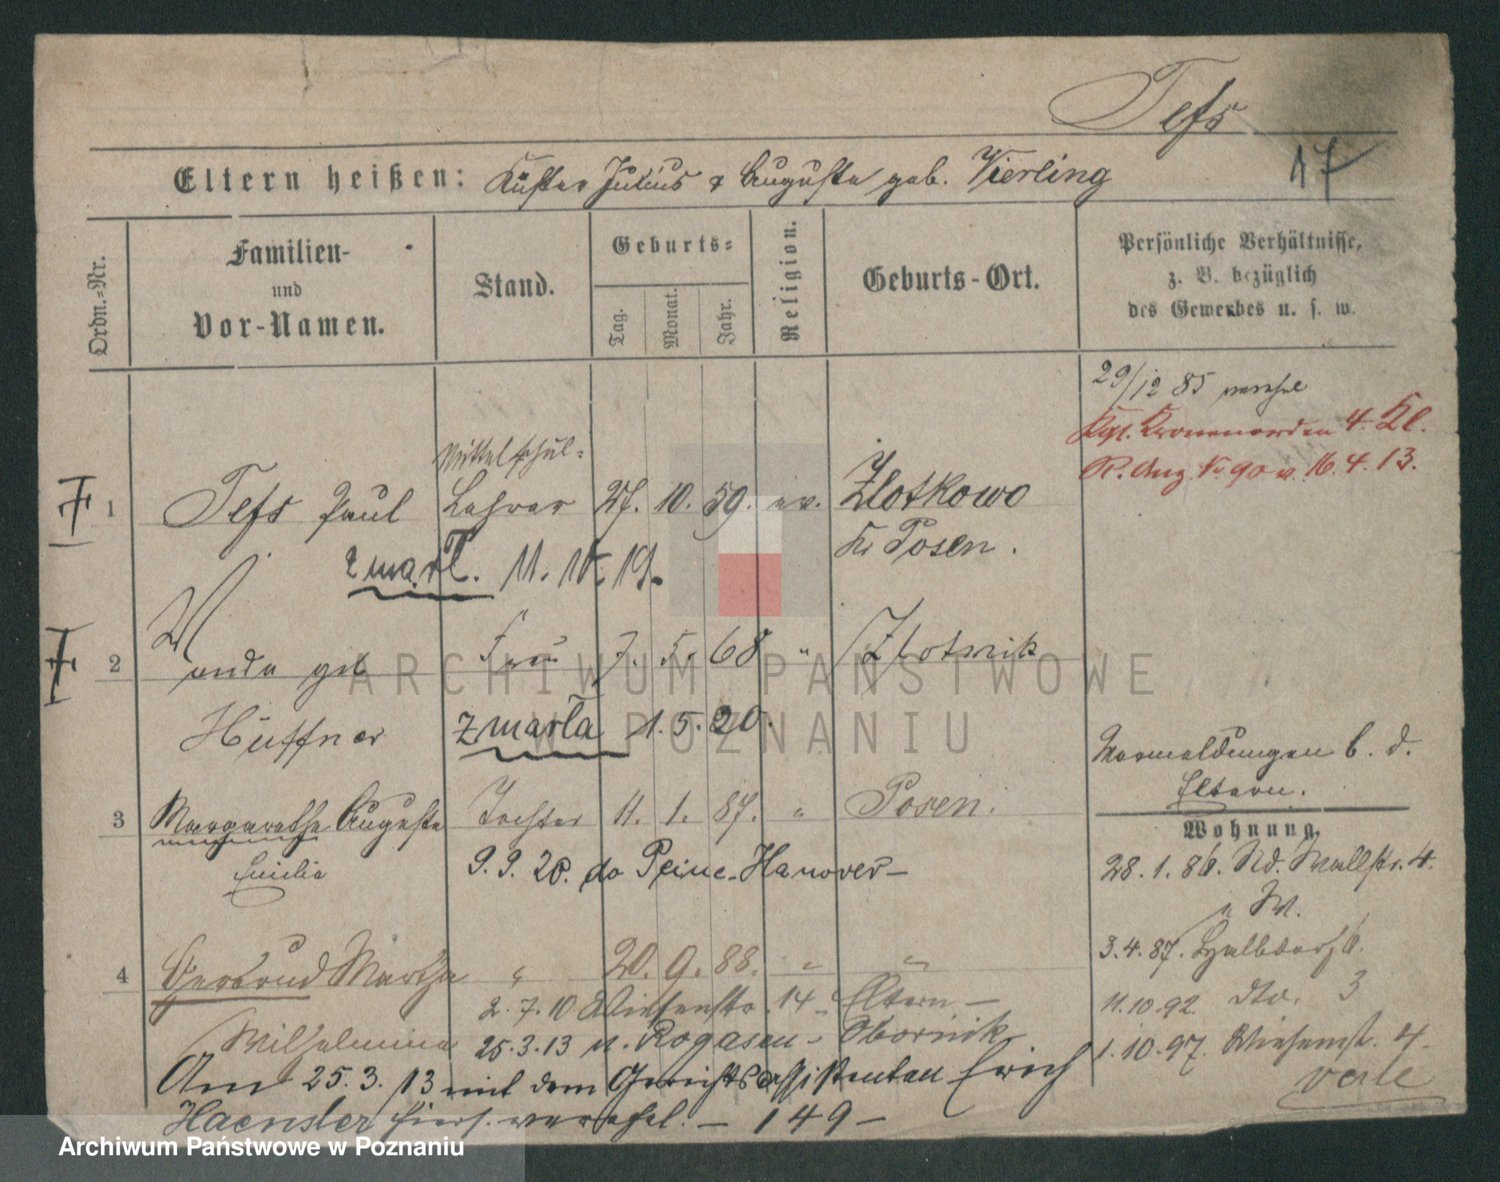 Tefs
17
Eltern heißen: Küster Julius & Auguste geb. Vierling
Ordn.-Nr.
Familien- und Vor-Namen.
Stand.
Geburts-
Tag.
Monat.
Jahr.
Religion.
Geburts-Ort.
Persönliche Verhältnisse, z. B. bezüglich des Gewerbes u. s. w.
29/12 85 verehel
Kgl. Kronenorden 4. Kl.
R. Anz. No 90 v. 16.4.13.
Mittelschul-
1 Tefs Paul Lehrer 27. 10. 59. ev. Zlotkowo
Kr Posen.
zmarł. 11. 10. 19.
2 Wanda geb Frau 7. 5. 68 " Zlotnik
Hüffner zmarła 1. 5. 20.
Vermeldungen b. d.
Eltern.
3 Margarethe Auguste Tochter 11. 1. 87. " Posen.
Emilie 9. 9. 20. do Peine-Hanover-
Wohnung.
28. 1. 86. Wallstr. 4.
4 Gertrud Martha " 20. 9. 88. " "
3. 4. 87. Halbdorfs
2. 7. 10 Wiesenstr. 14 Eltern -
11. 10. 92. dto. 3
Wilhelmine 25. 3. 13 n. Rogasen - Obornik
1. 10. 97. Wiesenst. 4.
Am 25. 3. 13 mit dem Gerichtsassistenten Erich
verte
Haensler hiers. verehel. - 149 -
ARCHIWUM PAŃSTWOWE
W POZNANIU
Archiwum Państwowe w Poznaniu